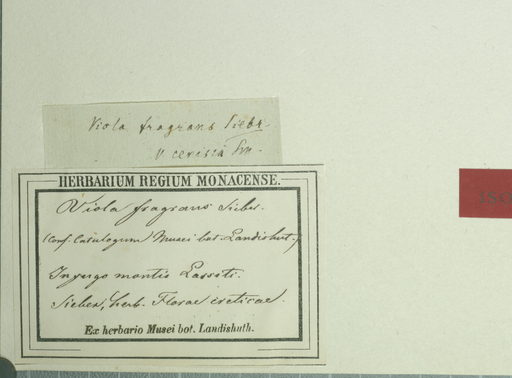 Viola fragrans Siebr.
V cenisia Sm.
HERBARIUM REGIUM MONACENSE.
Viola fragrans Sieber.
(Conf. Catalogum Musei bot. Landishut.)
In jugo montis Lassiti.
Sieber, herb. Florae creticae.
Ex herbario Musei bot. Landishuth.